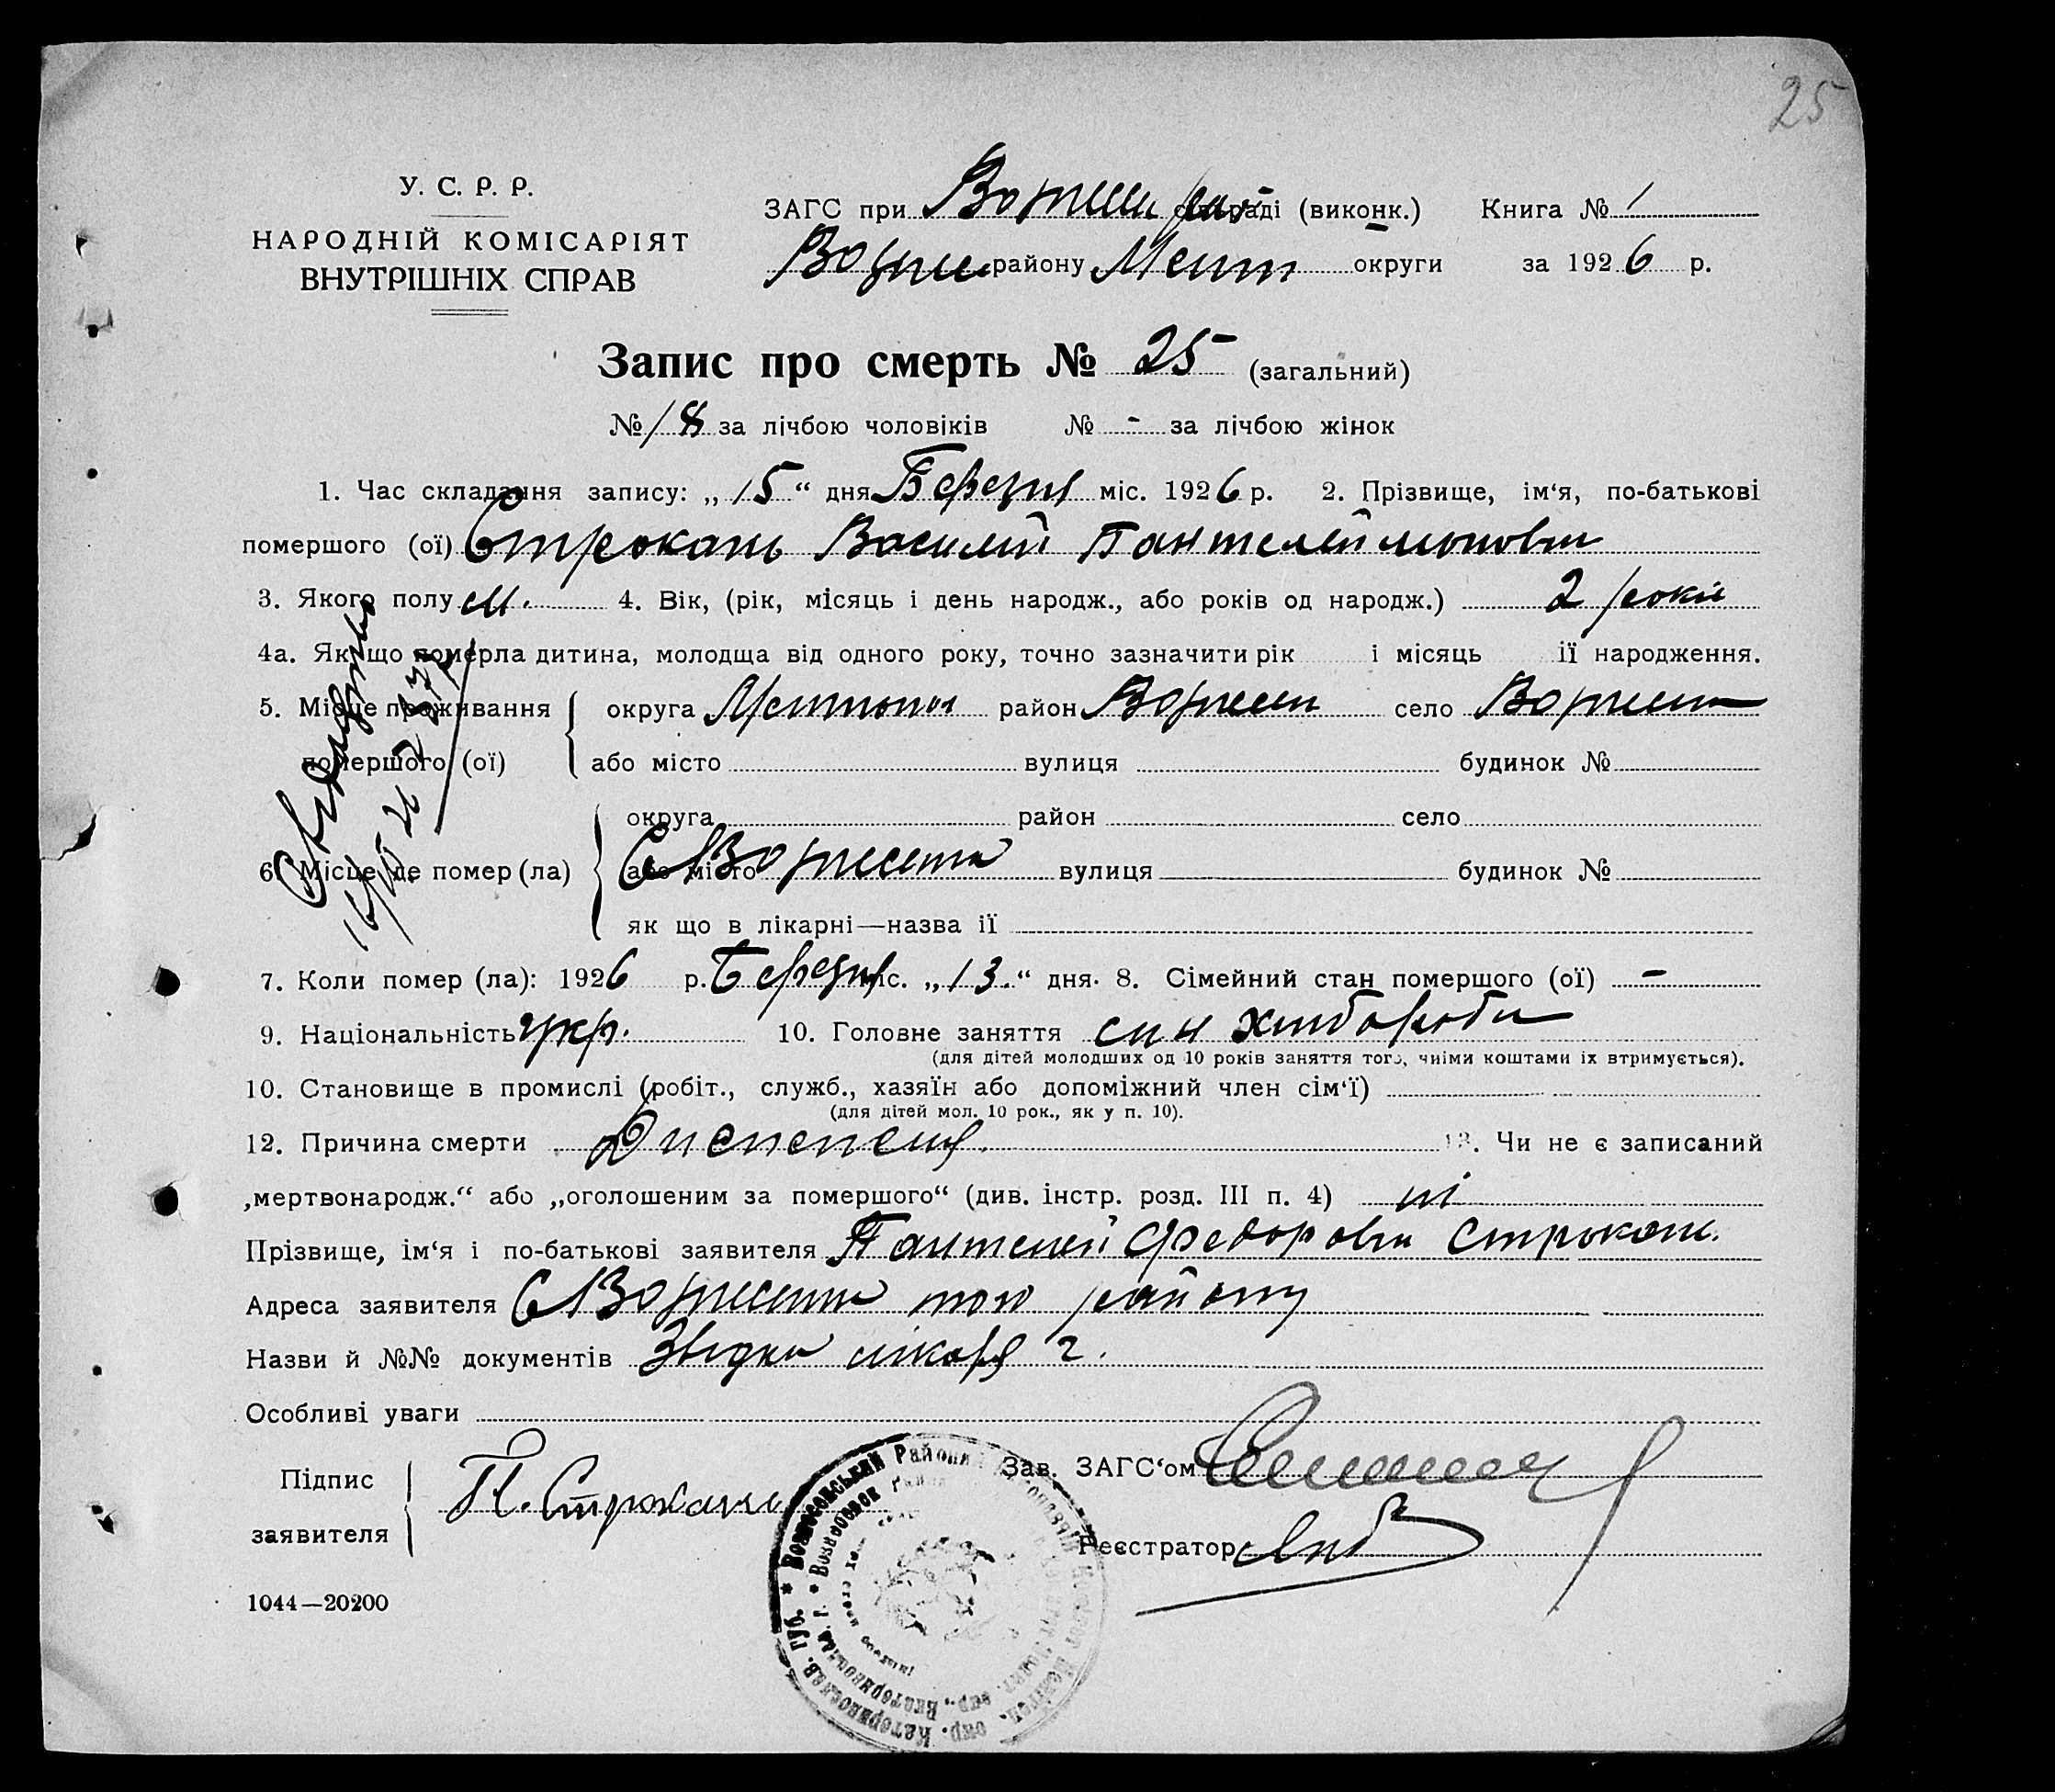 25
У. С. Р. Р.
НАРОДНІЙ КОМІСАРІЯТ
ВНУТРІШНІХ СПРАВ
ЗАГС при раді (виконк.) Книга № 1
району Меліт округи за 1926 р.
Запис про смерть № 25 (загальний)
№ 18 за лічбою чоловіків № - за лічбою жінок
1. Час складання запису: „15“ дня Березня міс. 1926 р. 2. Прізвище, ім‘я, по-батькові
помершого (ої) Строкань Василий Пантелеймонович
3. Якого полу м. 4. Вік, (рік, місяць і день народж., або років од народж.) 2 роки
4а. Як що померла дитина, молодща від одного року, точно зазначити рік і місяць її народження.
5. Місце проживання округа район село
помершого (ої) або місто вулиця будинок №
округа район село
6. Місце де помер (ла) або місто вулиця будинок №
як що в лікарні—назва її
7. Коли помер (ла): 1926 р. Березня міс. „13.“ дня. 8. Сімейний стан помершого (ої) -
9. Національність укр. 10. Головне заняття син хлібороба
(для дітей молодших од 10 років заняття того, чиіми коштами іх втримується).
10. Становище в промислі (робіт., служб., хазяїн або допоміжний член сім‘ї)
(для дітей мол. 10 рок., як у п. 10).
12. Причина смерти Диспепсия. 13. Чи не є записаний
„мертвонародж.“ або „оголошеним за помершого“ (див. інстр. розд. III п. 4) ні
Прізвище, ім‘я і по-батькові заявителя Пантелей Федорович Строкань.
Адреса заявителя того району
Назви й №№ документів лікаря
Особливі уваги
Підпис П. Строкань Зав. ЗАГС‘ом
заявителя Реєстратор
1044—20200